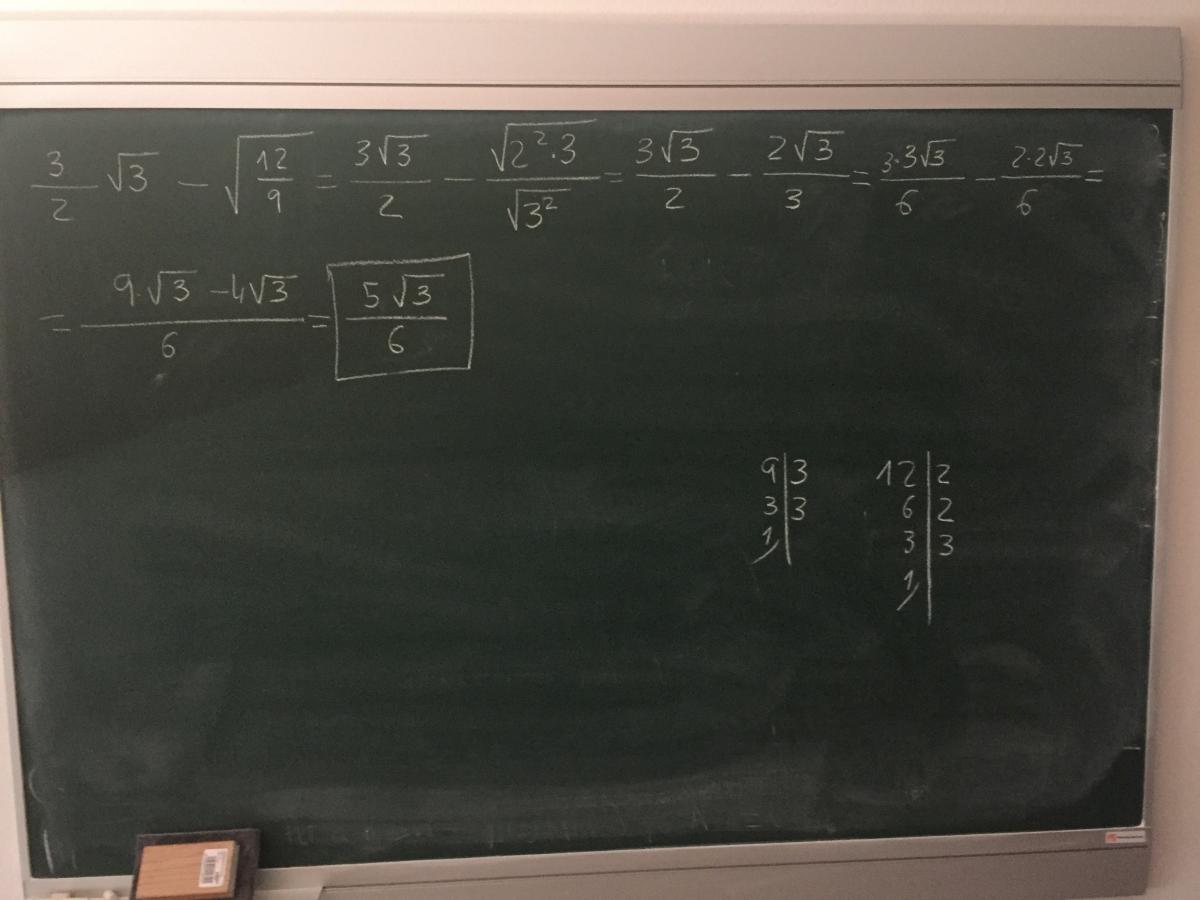 3/2 √3 − √(12/9) = 3√3/2 − √(2²·3)/√(3²) = 3√3/2 − 2√3/3 = 3·3√3/6 − 2·2√3/6 =
= (9·√3 − 4√3)/6 = 5√3/6
9|3 12|2
3|3 6|2
1| 3|3
1|